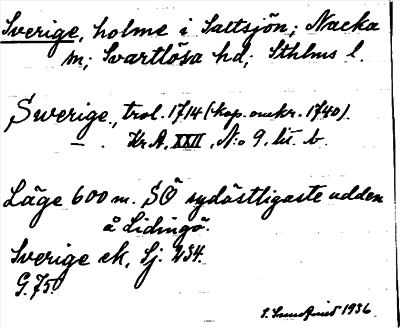 Sverige, holme i Saltsjön; Nacka
sn; Svartlösa hd; Sthlms l.
Swerige, trol. 1714 (kop. omkr. 1740).
— . Kr.A. XXII, N:o 9, lit. b.
Läge 600 m. SÖ sydöstligaste udden
å Lidingö.
Sverige ek, Sj. 234.
G. 75.
1936.